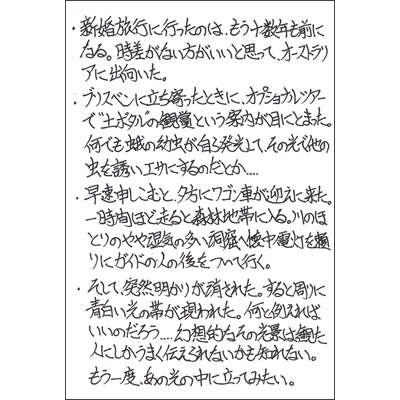 ・新婚旅行に行ったのは、もう十数年も前に
なる。時差がない方がいいと思って、オーストラリ
アに出向いた。
・ブリスベンに立ち寄ったときに、オプショナルツアー
で"土ボタル"の観賞という案内が目にとまた。
何でも蛾の幼虫が自ら発光して、その光で他の
虫を誘いエサにするのだとか....
・早速申しこむと、夕方にワゴン車が迎えに来た。
一時間ほど走ると森林地帯に入る。川のほ
とりのやや湿気の多い洞窟へ懐中電灯を頼
りにガイドの人の後をついて行く。
・そして、突然明かりが消された。すると周りに
青白い光の帯が現われた。何と例えれば
いいのだろう....幻想的なその光景は観た
人にしかうまく伝えられないかも知れない。
もう一度、あの光の中に立ってみたい。